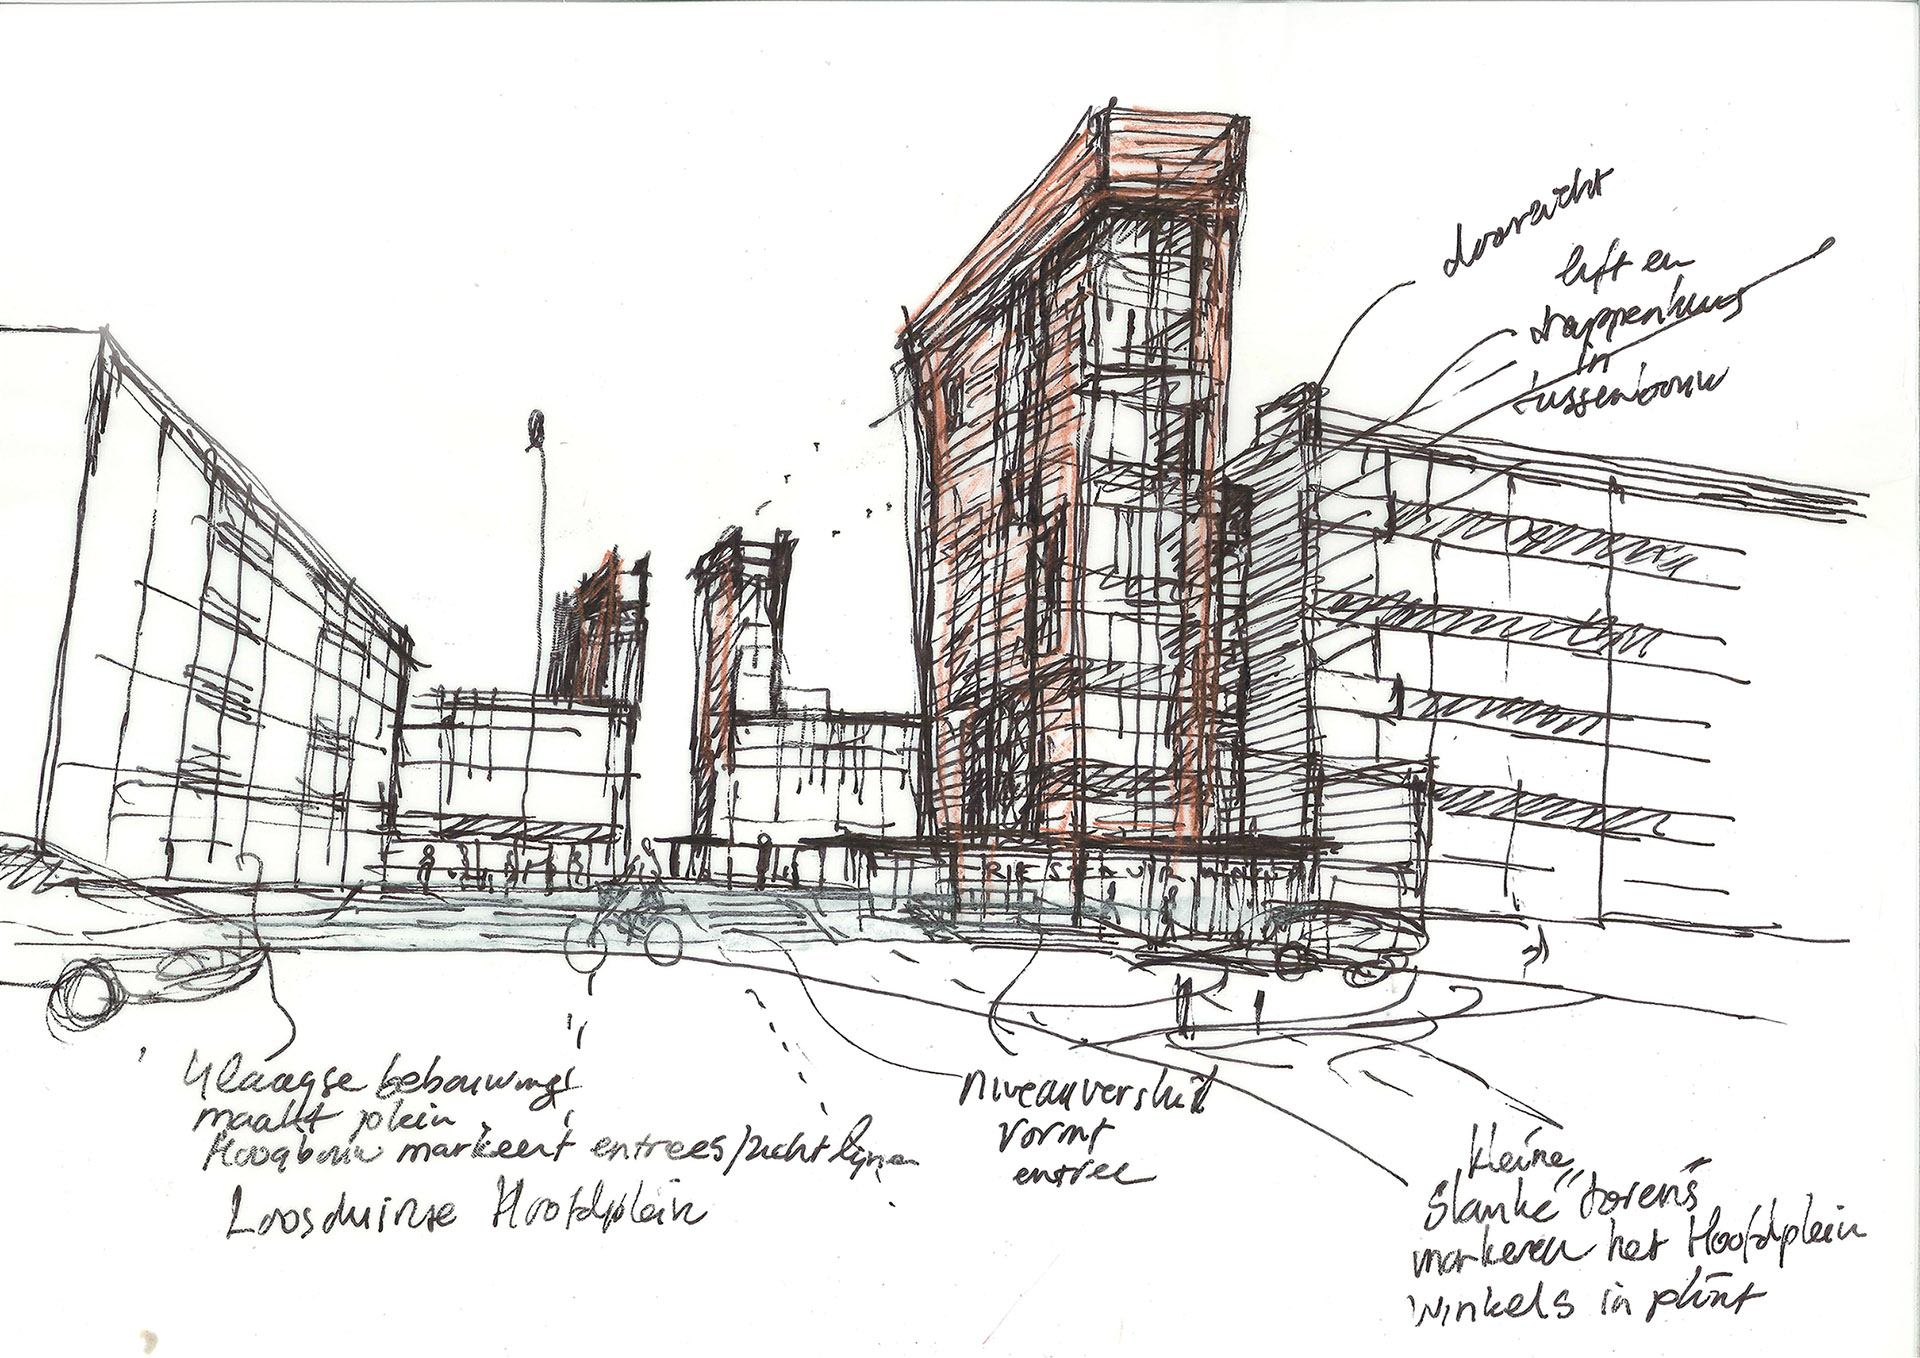 doorzicht
lift en
trappenhuis
in
tussenbouw
RESTAURANT
4 laagse bebouwing
maakt plein
Hoogbouw markeert entrees/zichtlijnen
Loosduinse Hoofdplein
niveauverschil
vormt
entree
kleine
"slanke" torens
markeren het Hoofdplein
winkels in plint